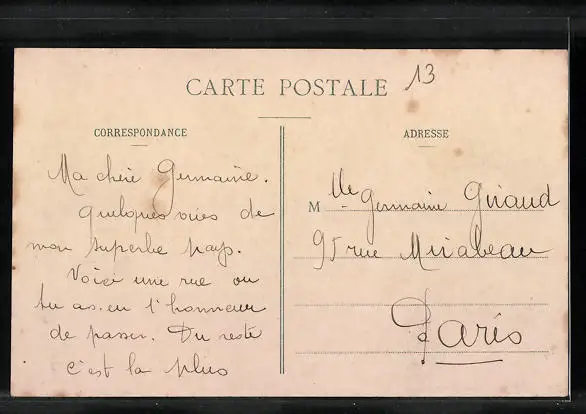 CARTE POSTALE 13
CORRESPONDANCE
Ma chère Germaine.
Quelques vues de
mon superbe pays.
Voici une rue ou
tu as eu l'honneur
de passer. Du reste
c'est la plus
ADRESSE
Mlle Germaine Giraud
95 rue Mirabeau
Paris